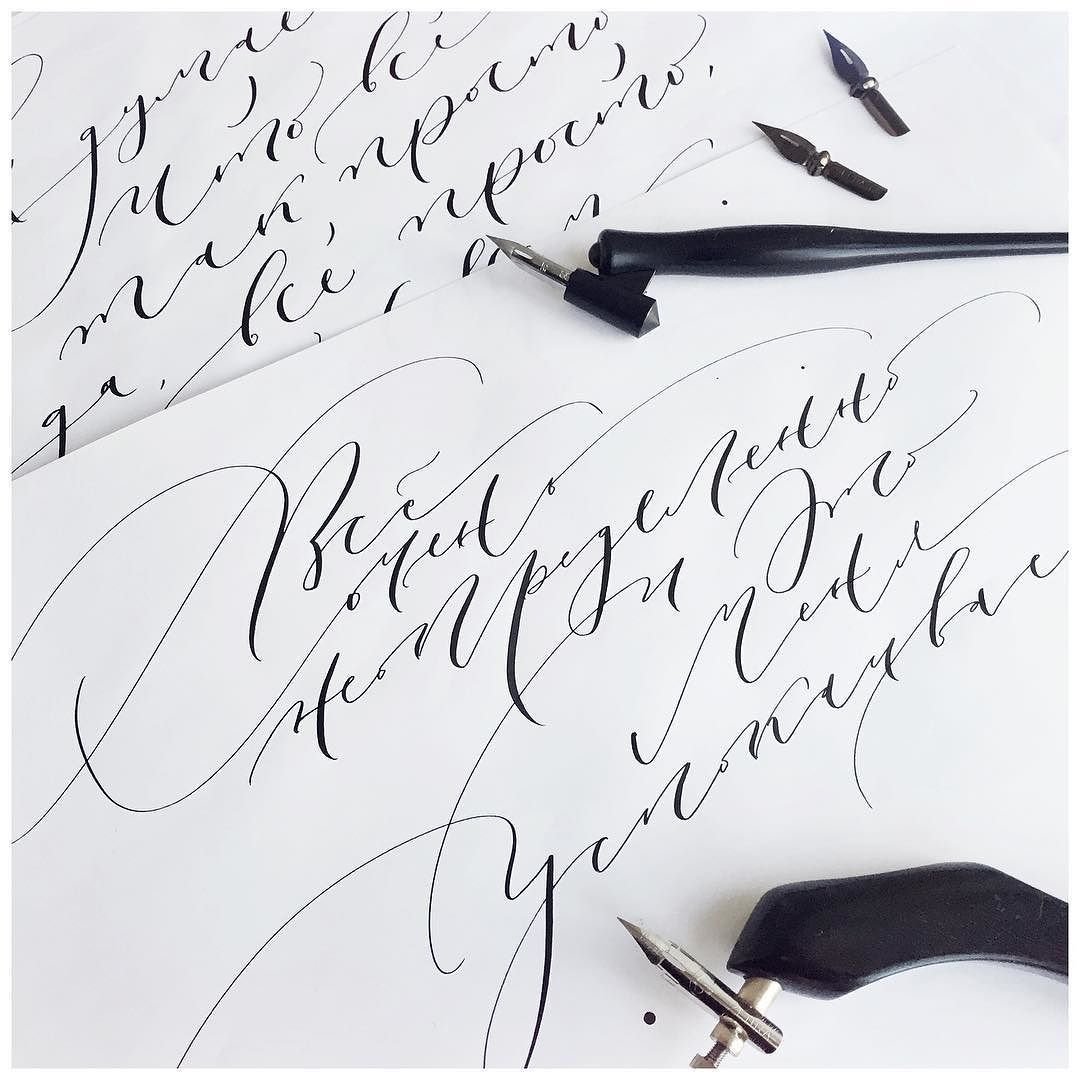 думае
Что всё
так просто
да, всё, просто,
Всё
очень
неопределенно
и это
меня
успокаивае